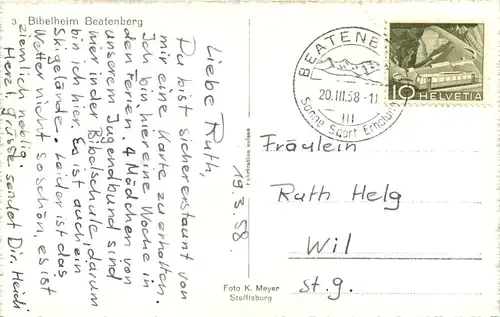 3 Bibelheim Beatenberg
19.3.58.
Liebe Ruth,
Du bist sicher erstaunt von
mir eine Karte zu erhalten.
Ich bin hier eine Woche in
den Ferien. 4 Mädchen von
unserem Jugendbund sind
immer in der Bibelschule, darum
bin ich hier. Es ist auch ein
Skigelände. Leider ist das
Wetter nicht so schön, es ist
ziemlich neblig.
Herzl. Grüsse sendet Dir, Heidi
Fabrication suisse
Foto K. Meyer
Steffisburg
BEATENB
20.III.58-11
III
Sonne Sport Erholung
10 HELVETIA
Fräulein
Ruth Helg
Wil
St. g.